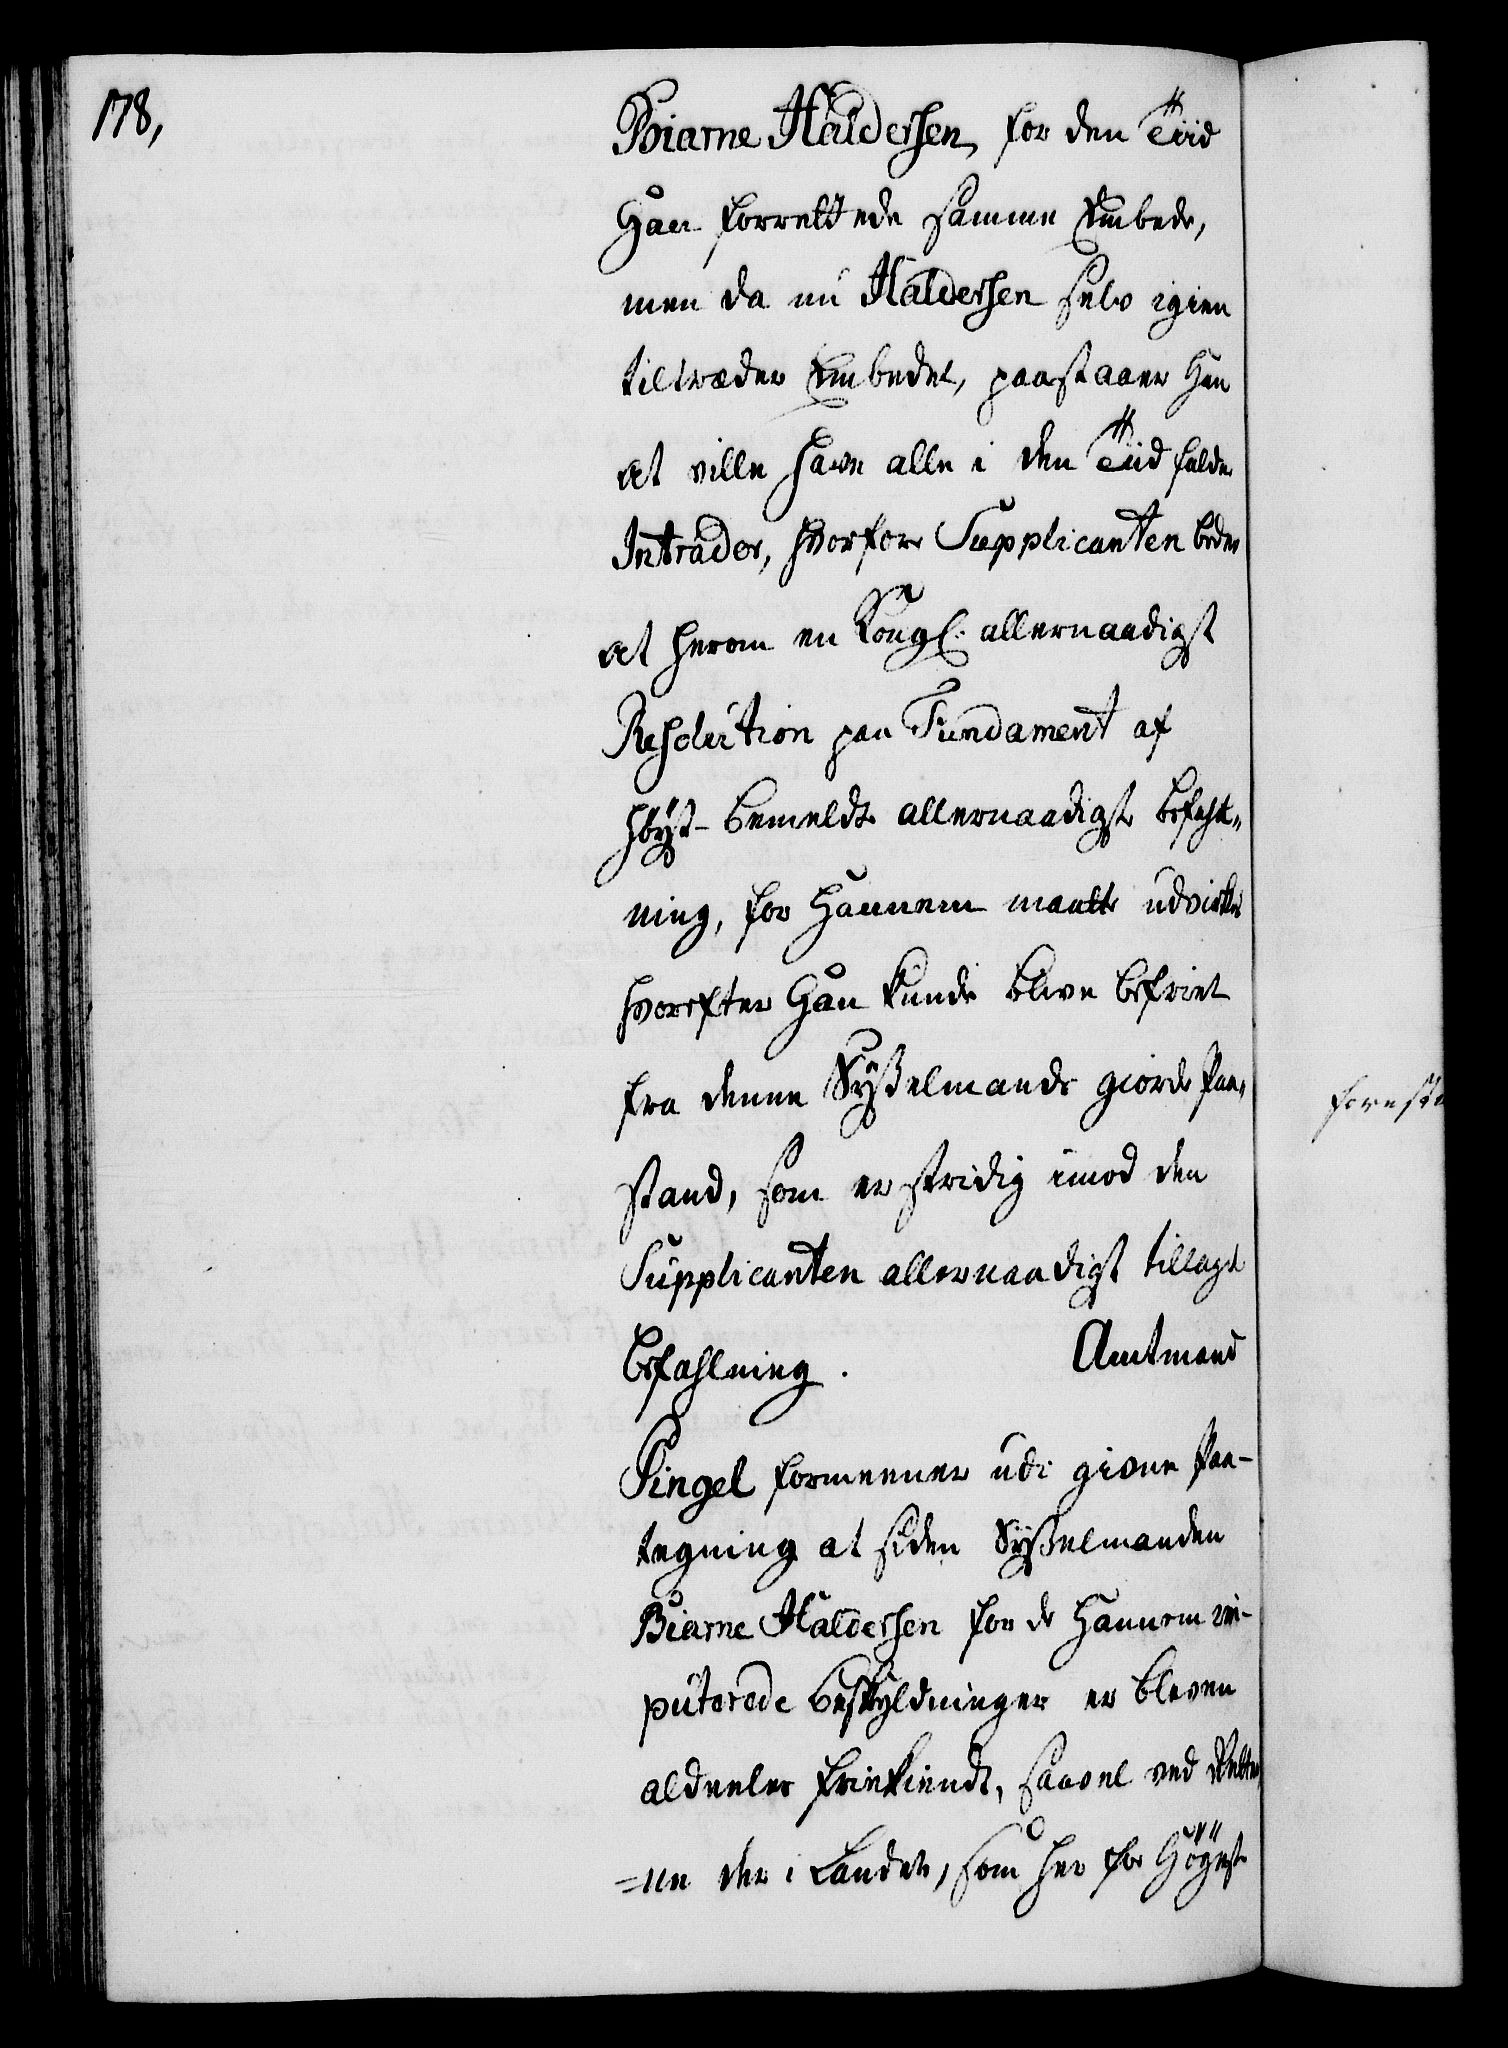 178,
Biarne Haldersen, for den Tiid
Han forrettede samme Embede,
men da nu Haldersen selv igien
tiltræder Embedet, paastaaer Han
at ville have alle i den Tiid faldne
Intrader, hvorfore Supplicanten beder
at herom en Kongl. allernaadigst
Resolution paa Fundament af
høyst-bemeldte allernaadigste befahl„
ning, for Hannem maatte udvirkes
hvorefter Han kunde blive befriet
fra denne Sysselmands giorde Paa„
stand, som er stridig imod den
Supplicanten allernaadigst tillagde
befahlning. Amtmand
Pingel formeener udi given Paa-
tegning at siden Sysselmanden
Biarne Haldersen for de Hannem im-
puterede beskyldninger er bleven
aldeeles friekiendt, saavel ved Rette„
=ne der i Landet, som her for Høyeste